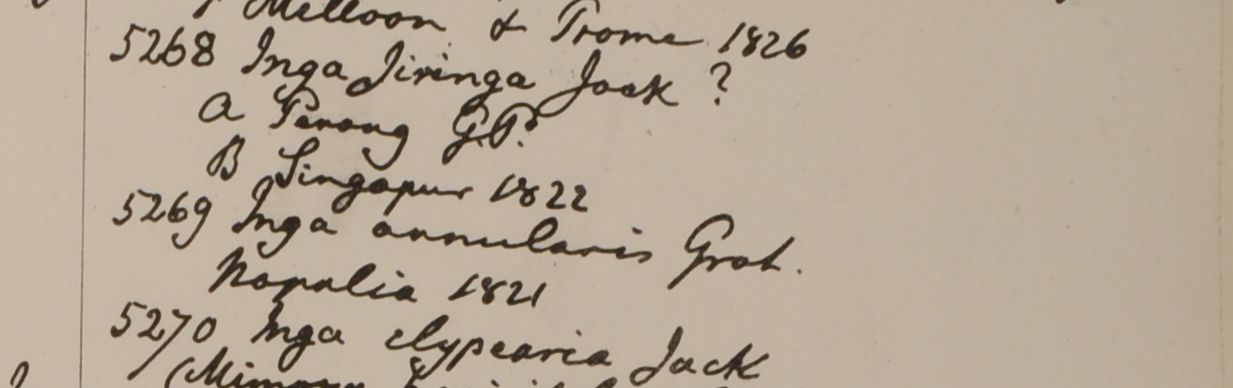 Melloon & Prome 1826
5268 Inga Jiringa Jack ?
a Penang G.P.
B Singapur 1822
5269 Inga annularis Grah.
Napalia 1821
5270 Inga clypearia Jack
(Mimosa